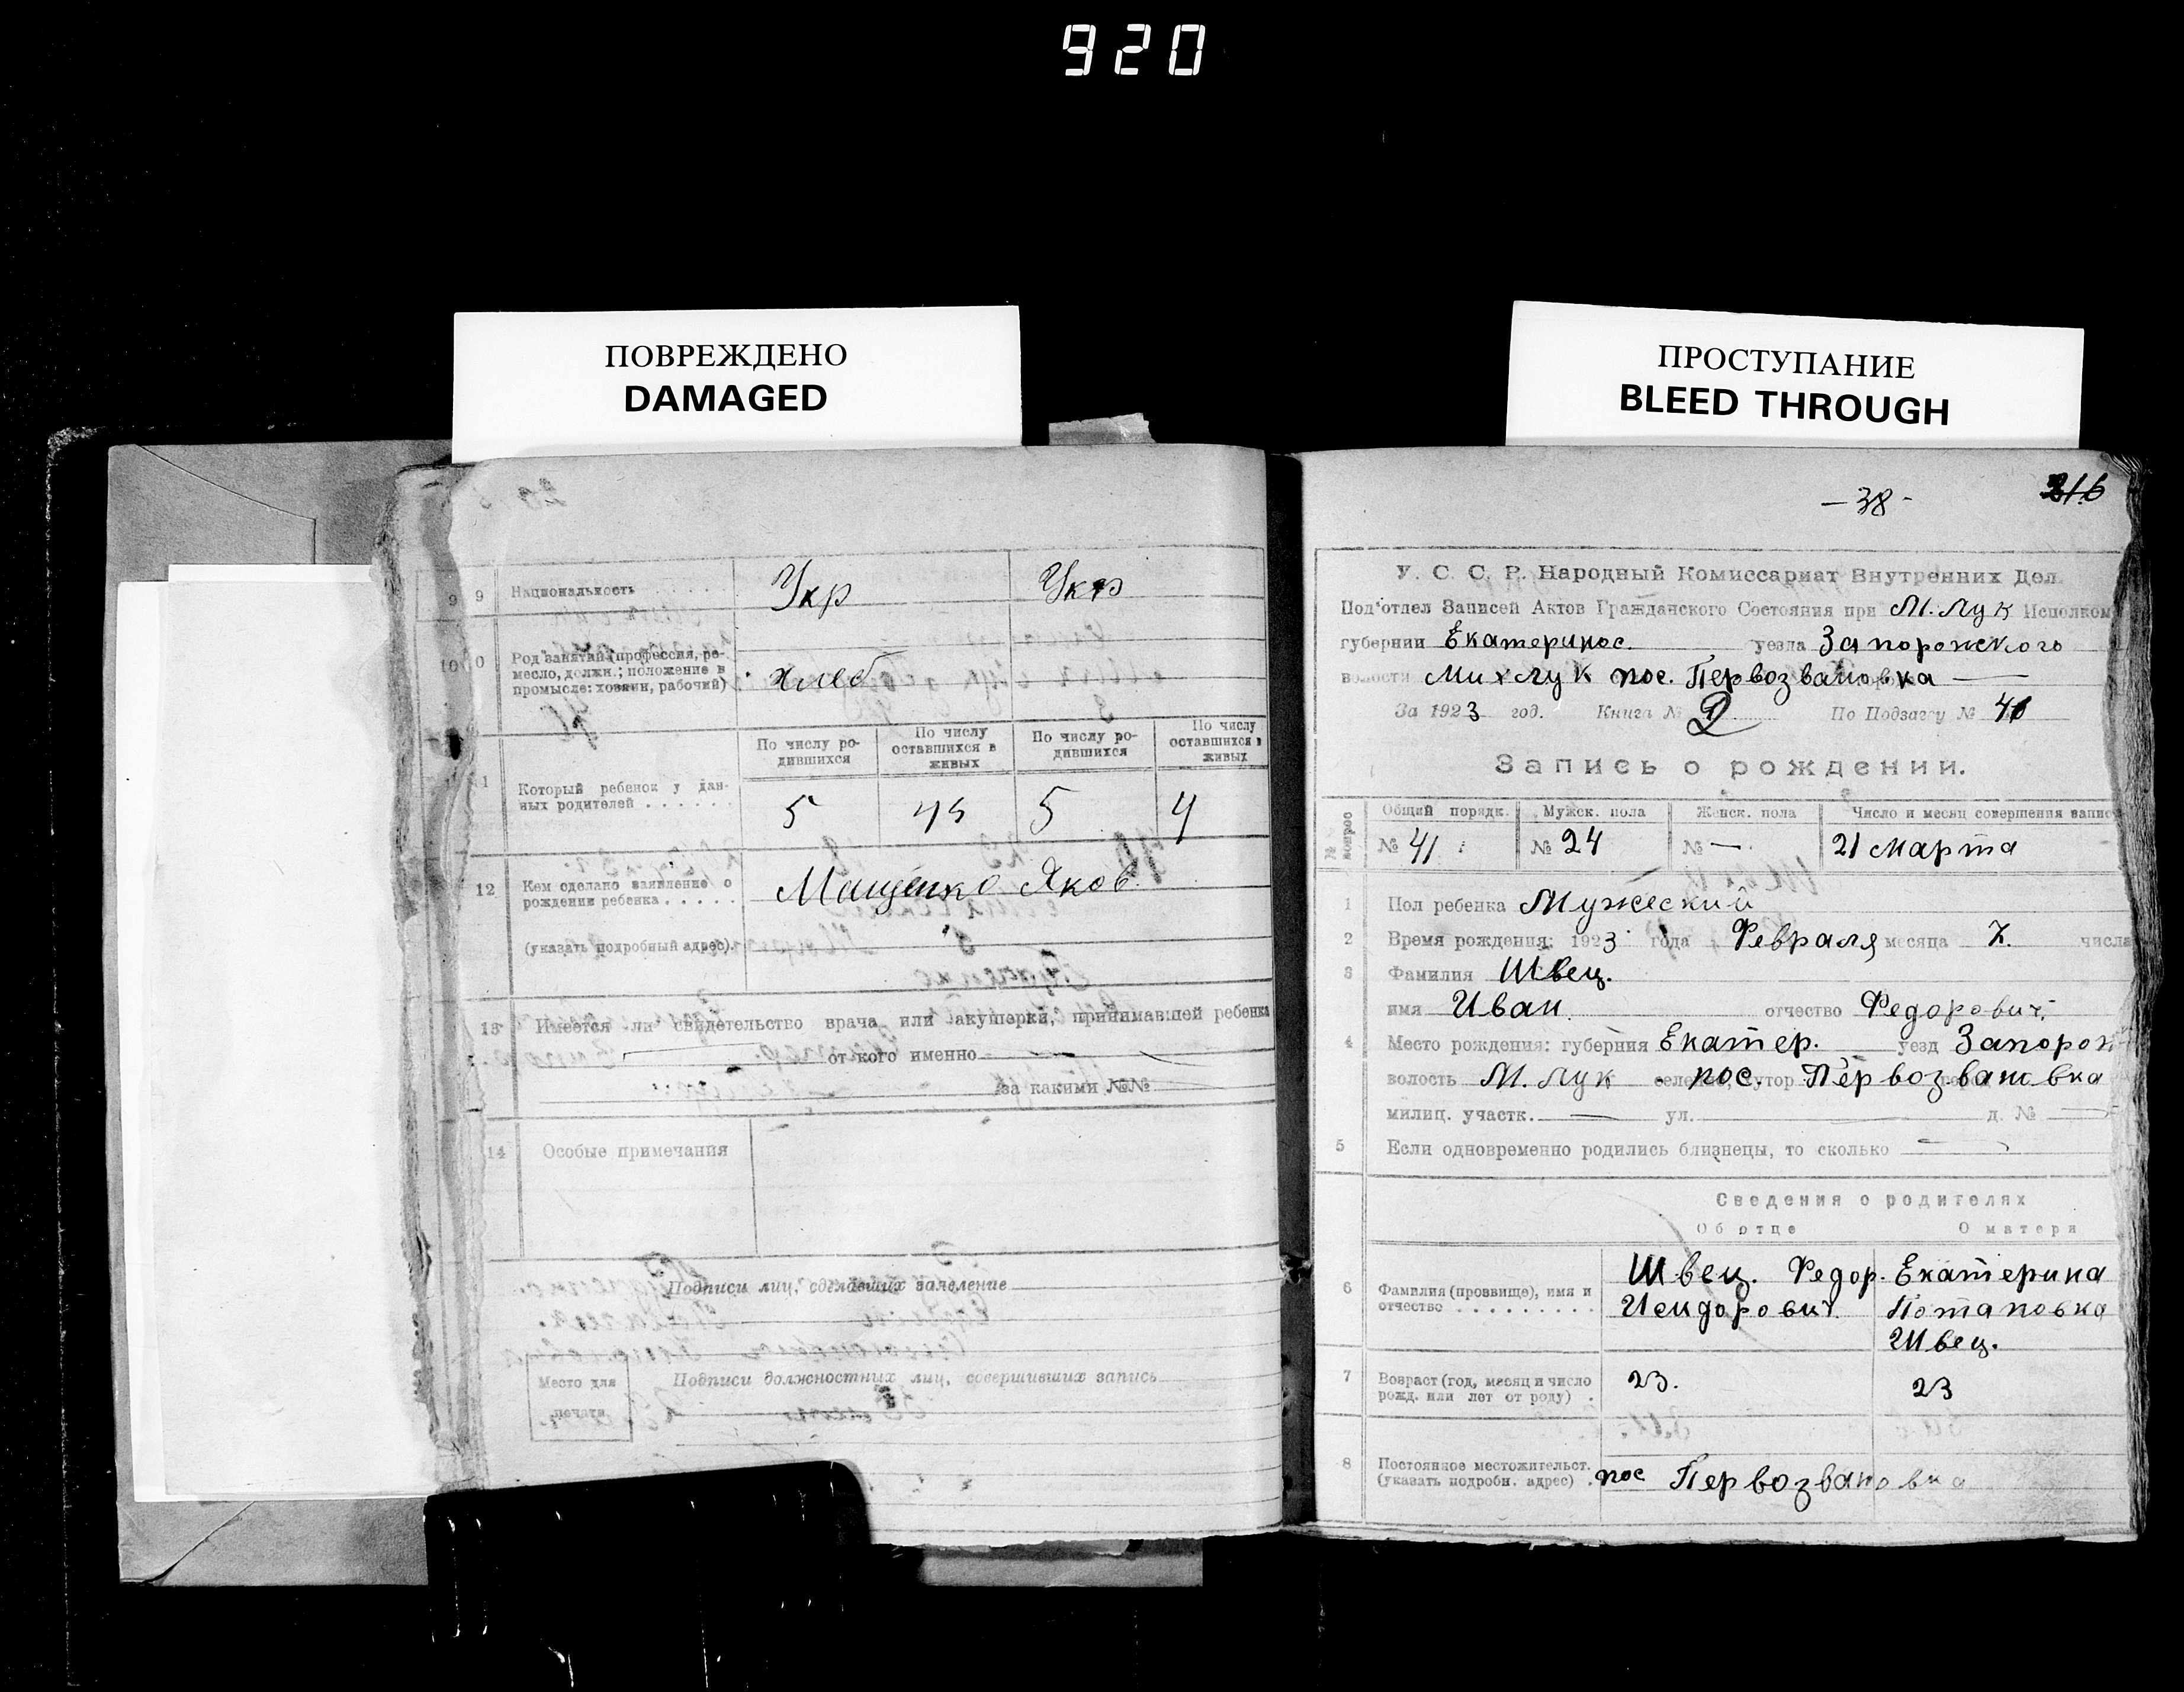 920
ПОВРЕЖДЕНО
DAMAGED
ПРОСТУПАНИЕ
BLEED THROUGH
9 9 Национальность . . . . Укр Укр
10 0 Род занятий (профессия, ре-
месло, должн.; положение в
промысле: хозяин, рабочий) хлеб
1 Который ребенок у дан-
ных родителей . . . . . .
По числу ро-
дившихся
По числу
оставшихся в
живых
По числу ро-
дившихся
По числу
оставшихся в
живых
5 45 5 4
12 Кем сделано заявление о
рождении ребенка . . . . . Мащенко Яков
(указать подробный адрес).
13 Имеется ли свидетельство врача или акушерки, принимавшей ребенка
от кого именно
за какими №№
14 Особые примечания
Подписи лиц, сделавших заявление
Подписи должностных лиц, совершивших запись
Место для
печати
—38-
216
У. С. С. Р. Народный Комиссариат Внутренних Дел.
Под'отдел Записей Актов Гражданского Состояния при М. Лук Исполком
губернии Екатеринос. уезда Запорожского
волости МихЛук пос. Первозвановка —
За 1923 год. Книга № 2 По Подзагсу № 41
Запись о рождении.
№ вопрос
Общий порядк. Мужск. пола Женск. пола Число и месяц совершения запис
№ 41 № 24 № — 21 марта
1 Пол ребенка Мужеский
2 Время рождения: 1923 года Февраля месяца 7. числа
3 Фамилия Швец.
имя Иван. отчество Федорович.
4 Место рождения: губерния Екатер. уезд Запорож
волость М. Лук пос. Первозвановка
милиц. участк. — ул. — д. № —
5 Если одновременно родились близнецы, то сколько —
Сведения о родителях
Об отце О матери
6 Фамилия (прозвище), имя и
отчество . . . . . . . . . .
Швец. Федор.
Исидорович.
Екатерина
Потаповна
Швец.
7 Возраст (год, месяц и число
рожд. или лет от роду) . 23. 23
8 Постоянное местожительст.
(указать подробн. адрес) . пос Первозвановка